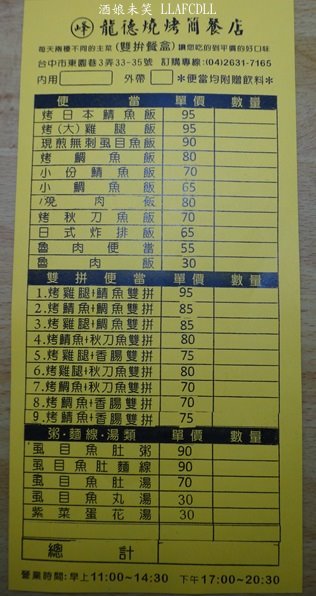 酒娘未笑 LLAFCDLL
峰 龍德燒烤簡餐店
每天兩種不同的主菜(雙拼餐盒)讓您吃的到平價的好口味
台中市東園巷3弄33-35號 訂購專線:(04)2631-7165
內用 外帶 ＊便當均附贈飲料＊
便當 單價 數量
烤日本鯖魚飯 95
烤(大)雞腿飯 95
現煎無刺虱目魚飯 90
烤鯛魚飯 80
小份鯖魚飯 70
小鯛魚飯 65
燒肉飯 80
烤秋刀魚飯 70
日式炸排飯 65
魯肉便當 55
魯肉飯 30
雙拼便當 單價 數量
1.烤雞腿+鯖魚雙拼 95
2.烤鯖魚+鯛魚雙拼 85
3.烤雞腿+鯛魚雙拼 85
4.烤鯖魚+秋刀魚雙拼 80
5.烤雞腿+香腸雙拼 75
6.烤雞腿+秋刀魚雙拼 80
7.烤鯛魚+秋刀魚雙拼 70
8.烤鯛魚+香腸雙拼 70
9.烤鯖魚+香腸雙拼 75
粥·麵線·湯類 單價 數量
虱目魚肚粥 90
虱目魚肚麵線 90
虱目魚肚湯 70
虱目魚丸湯 30
紫菜蛋花湯 30
總計
營業時間:早上11:00~14:30 下午17:00~20:30